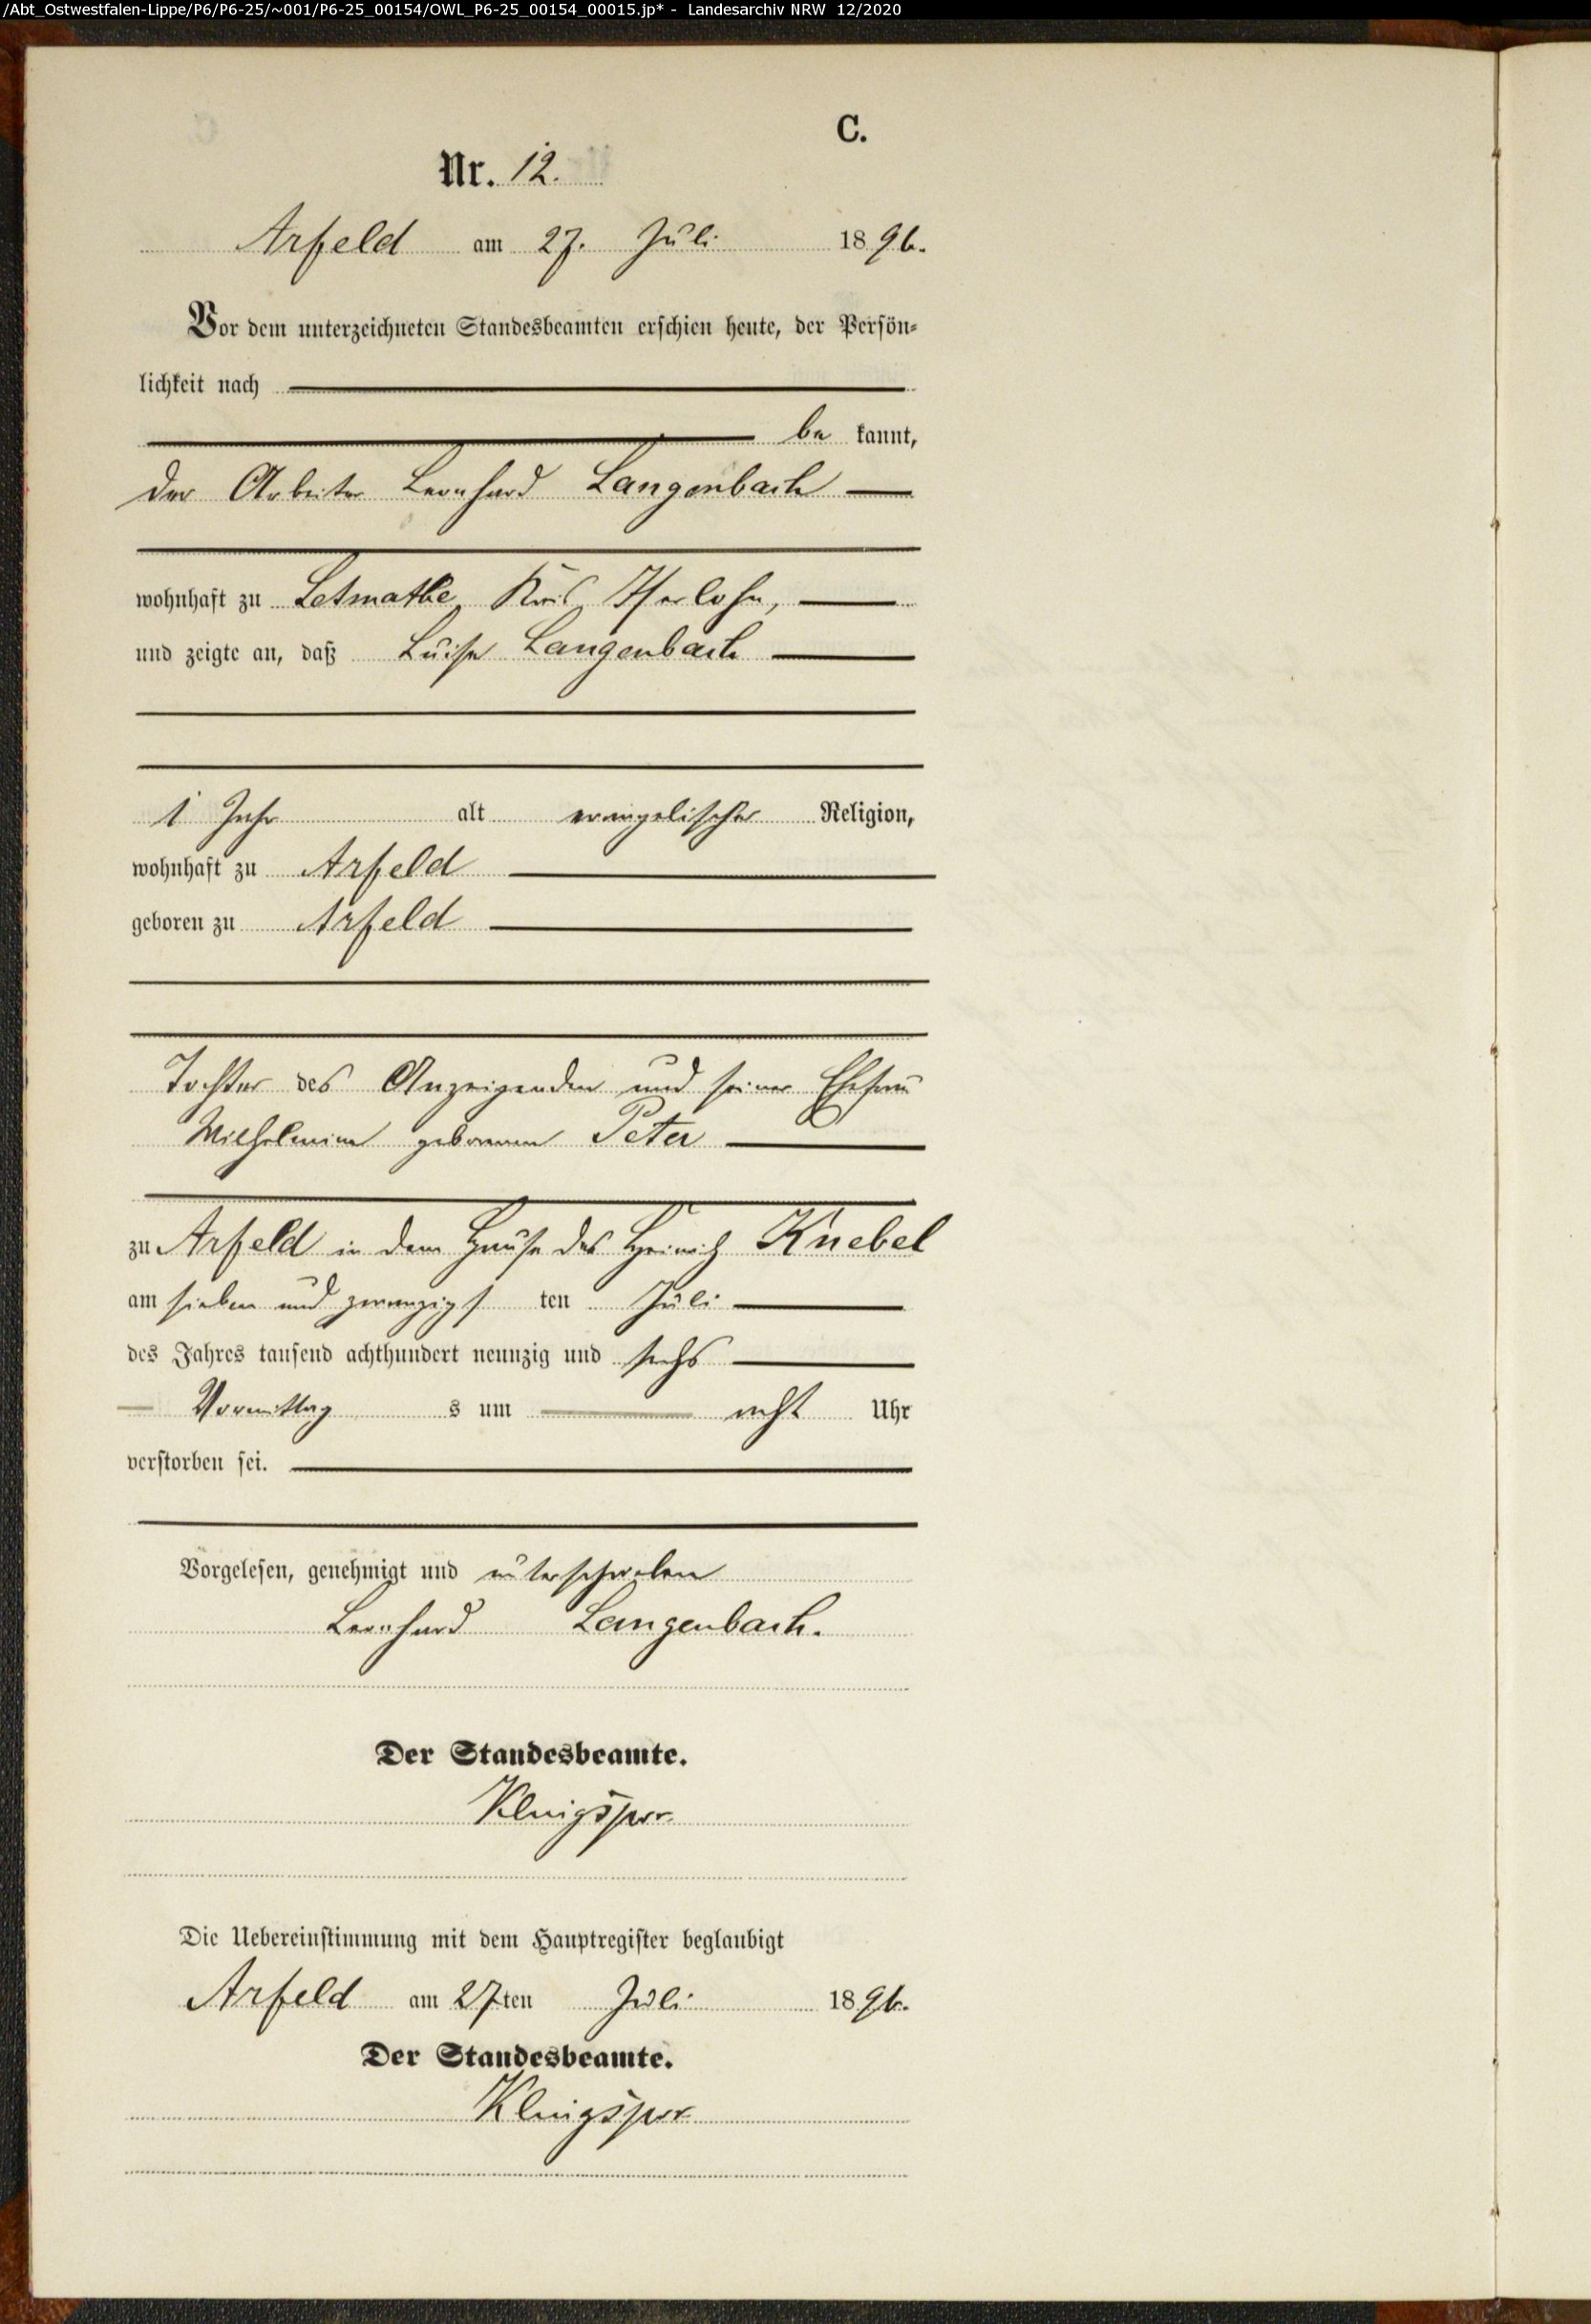 /Abt_Ostwestfalen-Lippe/P6/P6-25/~001/P6-25_00154/OWL_P6-25_00154_00015.jp* - Landesarchiv NRW 12/2020
C.
Nr. 12.
Arfeld am 27. Juli 1896.
Vor dem unterzeichneten Standesbeamten erschien heute, der Persön-
lichkeit nach
be kannt,
der Arbeiter Bernhard Langenbach
wohnhaft zu Letmathe, Kreis Iserlohn,
und zeigte an, daß Luise Langenbach
1 Jahr alt evangelischer Religion,
wohnhaft zu Arfeld
geboren zu Arfeld
Tochter des Anzeigenden und seiner Ehefrau
Wilhelmine geborenen Peter
zu Arfeld in dem Hause des Heinrich Knebel
am sieben und zwanzigs ten Juli
des Jahres tausend achthundert neunzig und sechs
Vormittag s um acht Uhr
verstorben sei.
Vorgelesen, genehmigt und unterschrieben
Bernhard Langenbach.
Der Standesbeamte.
Klingspor
Die Uebereinstimmung mit dem Hauptregister beglaubigt
Arfeld am 27ten Juli 1896.
Der Standesbeamte.
Klingspor